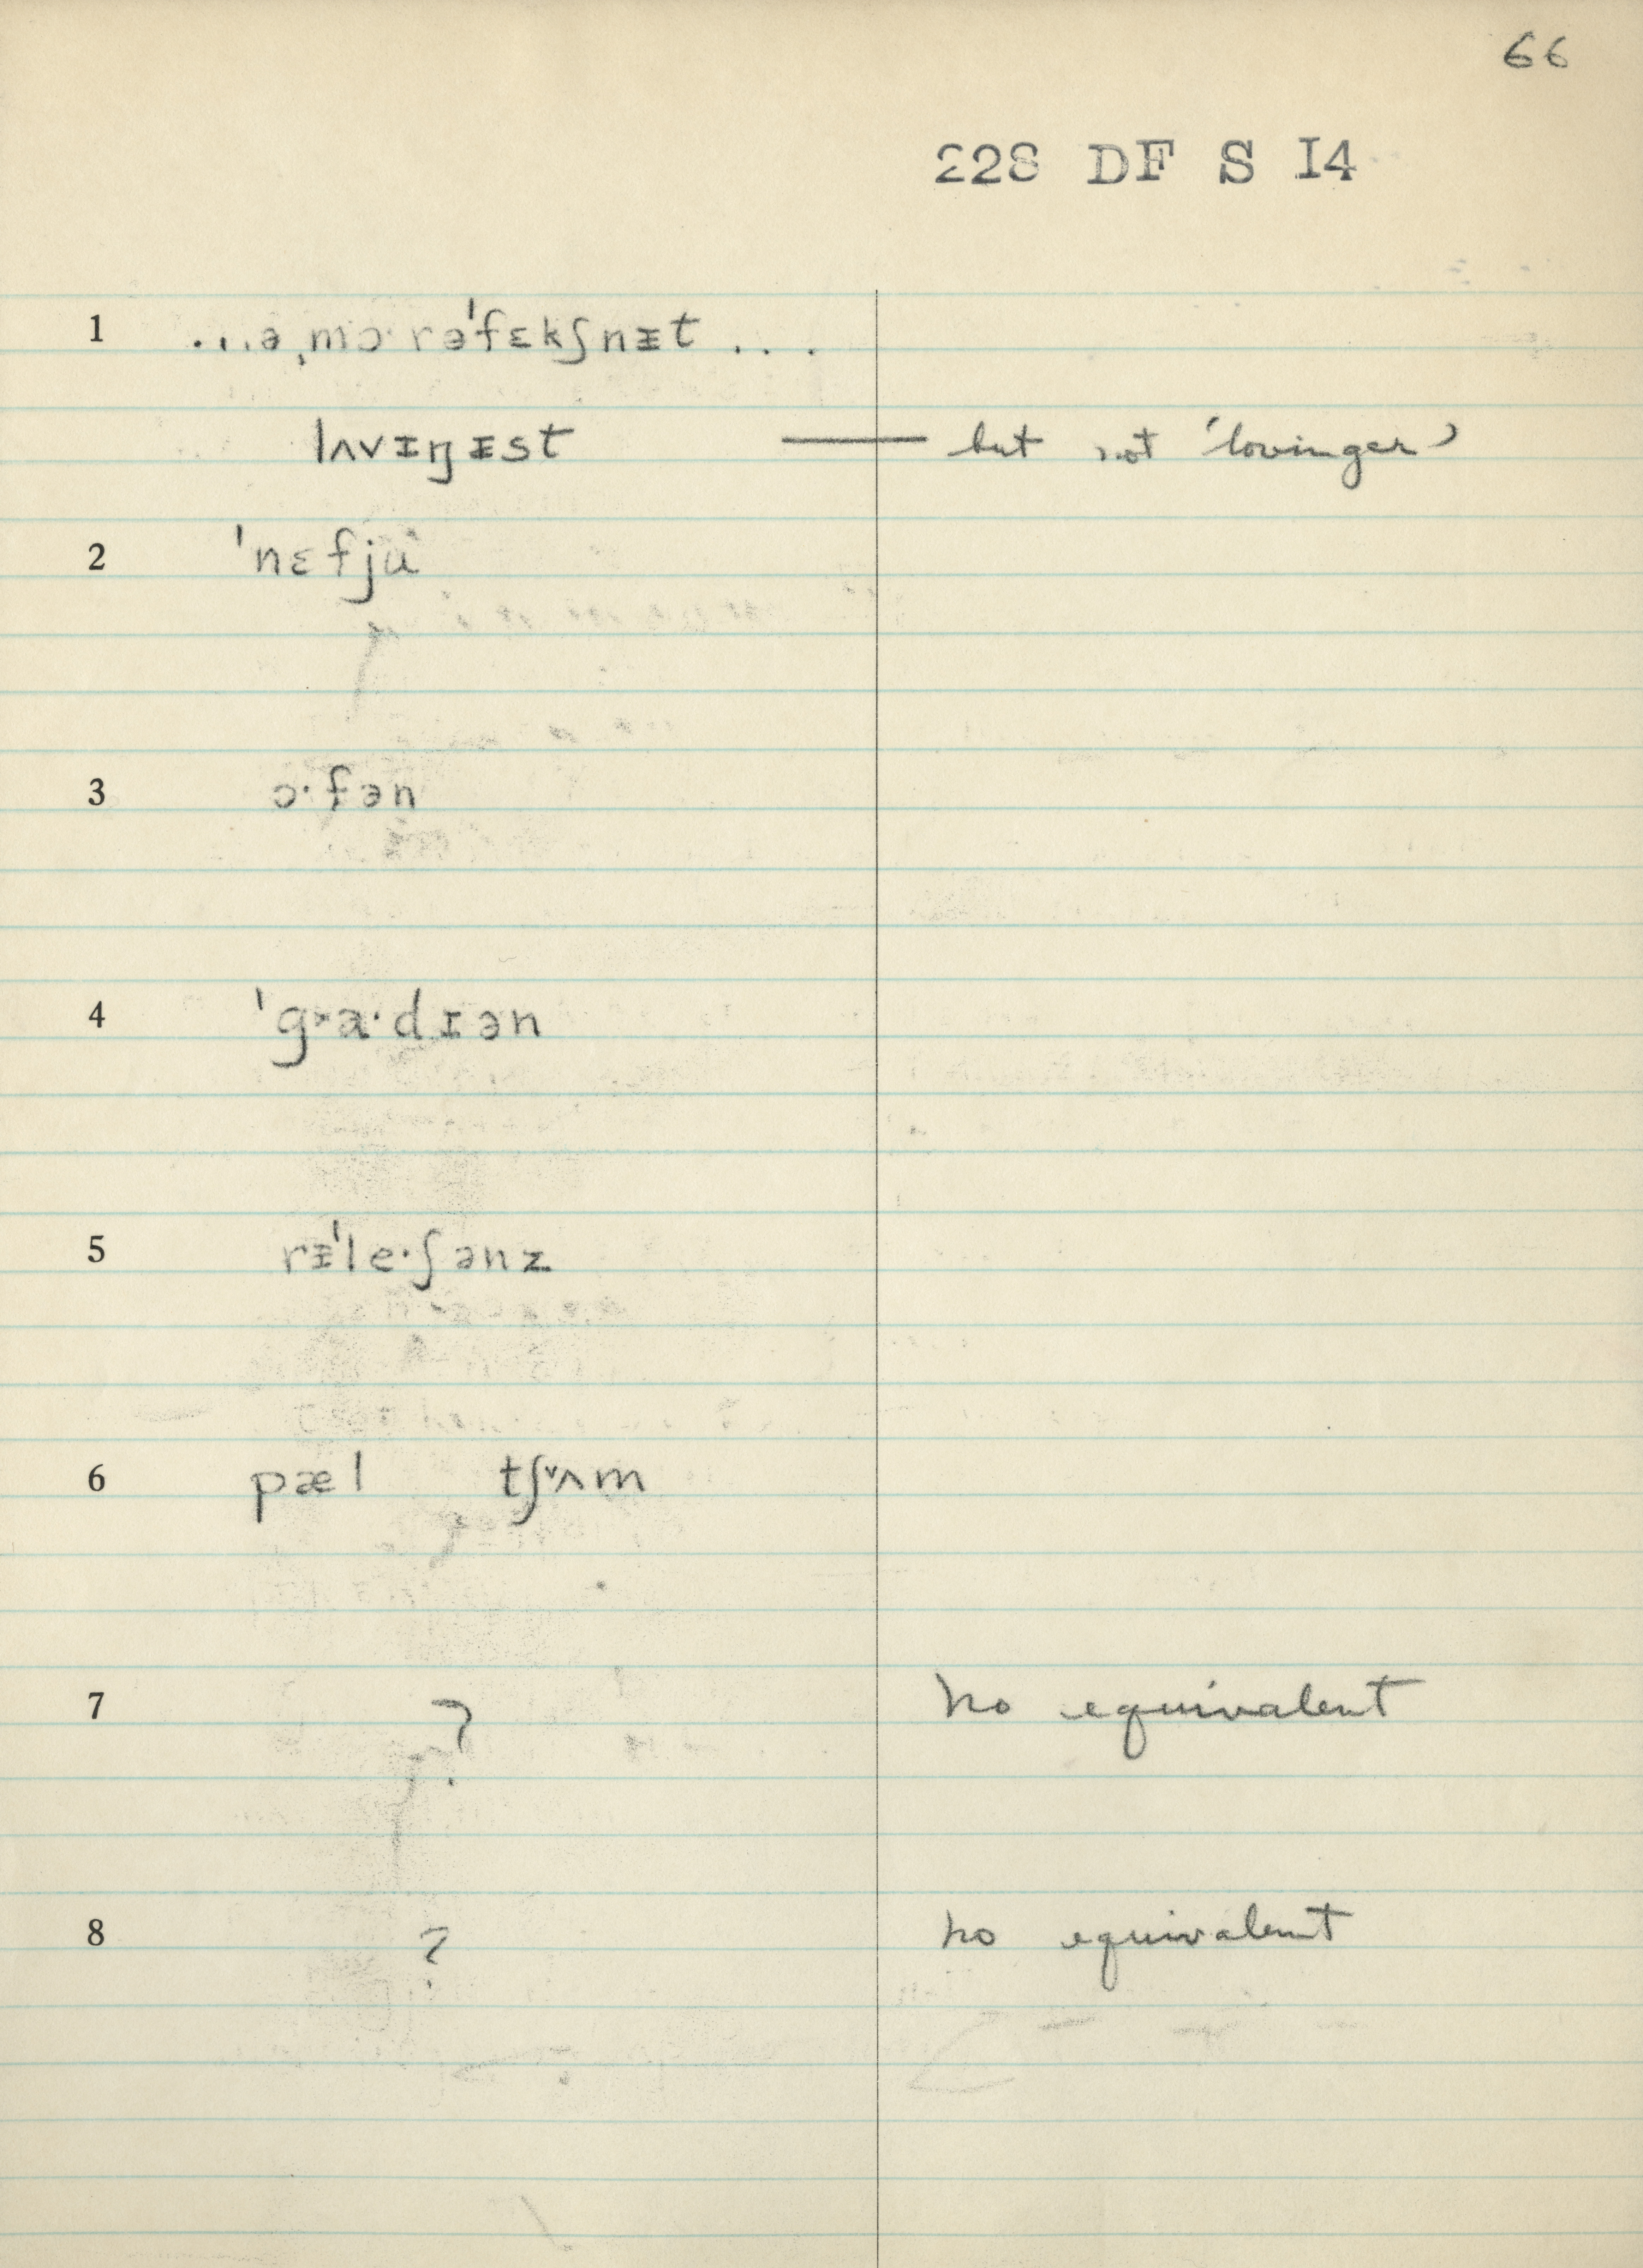 66
228 DF S I4
1 ...ə ˌmɔ·rəˈfɛkʃnɪt ...
lʌvɪŋɪst — but not 'lovinger'
2 ˈnɛfju
3 ɔ·fən
4 ˈg˃a·dɪən
5 rɪˈle·ʃənz
6 pæl tʃ˅ʌm
7 ? no equivalent
8 ? no equivalent